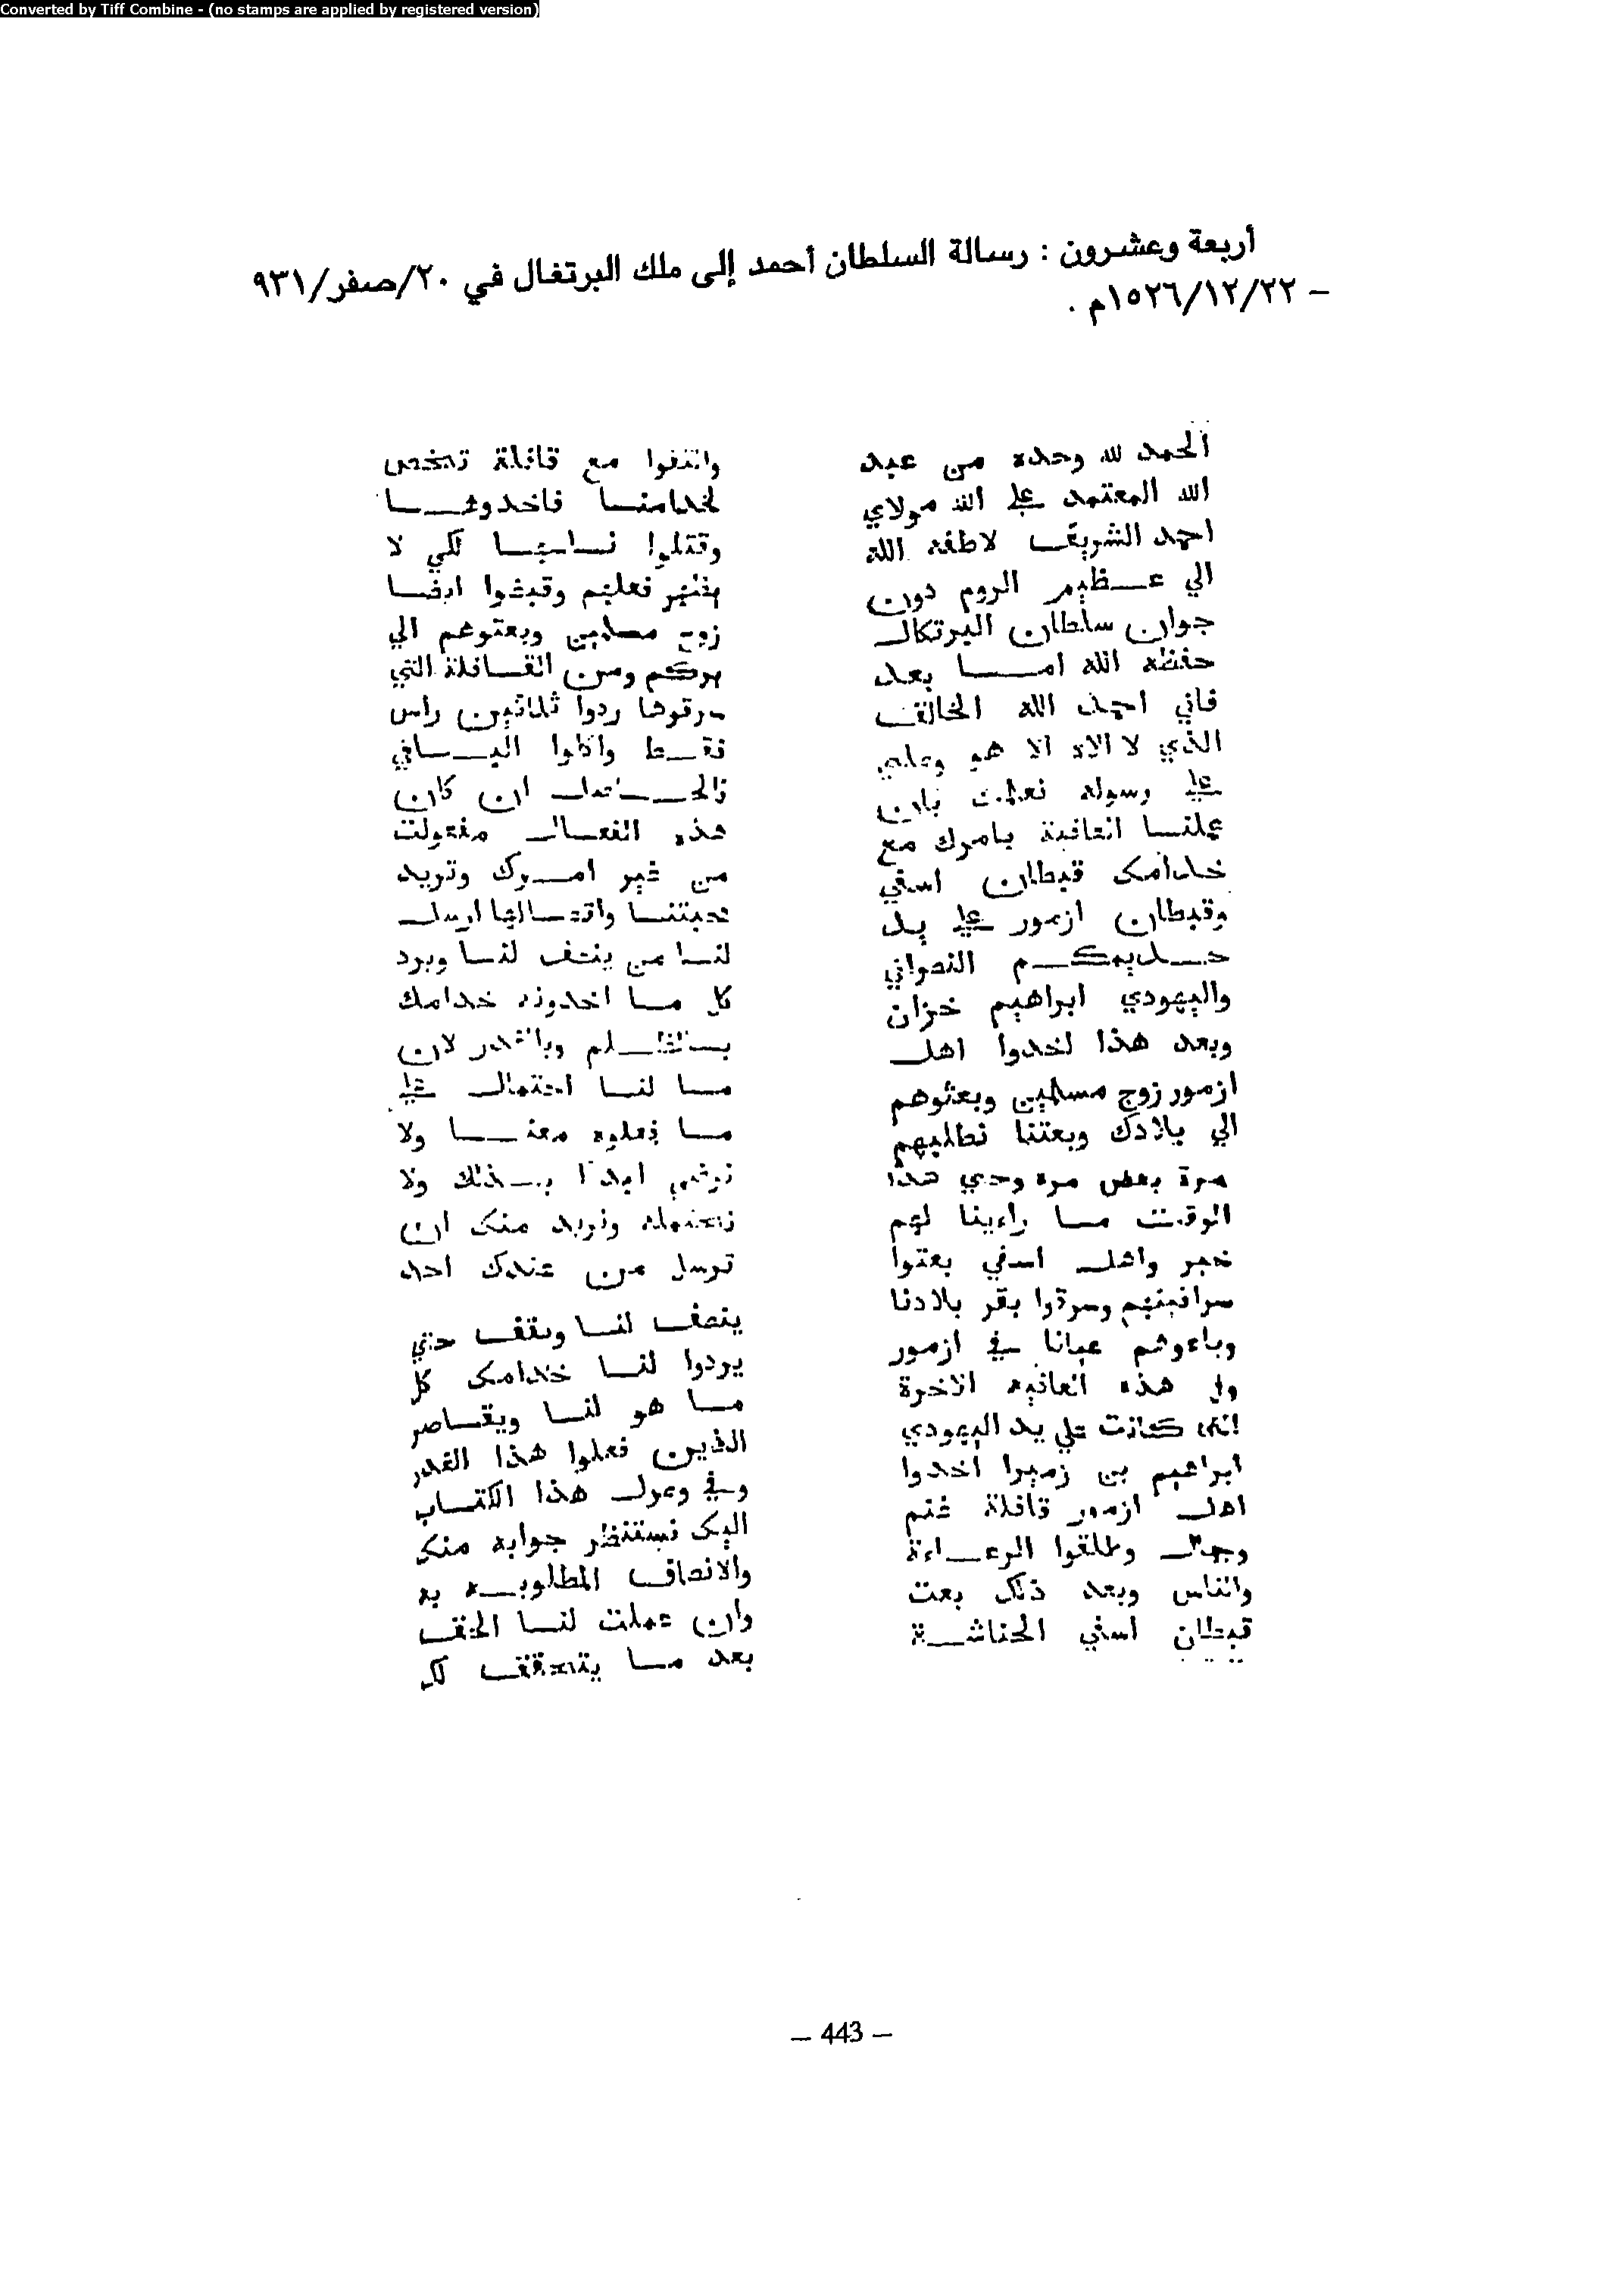 Converted by Tiff Combine - (no stamps are applied by registered version)
أربعة وعشرون : رسالة السلطان أحمد إلى ملك البرتغال في ٢٠/صفر/٩٣١
– ١٥٢٦/١٢/٢٢م .
الحمد لله وحده من عبد
الله المعتمد على الله مولاي
احمد الشريف لاطفه الله
الي عظيم الروم دون
جوان سلطان البرتكال
حفظه الله اما بعد
فاني احمد الله الخالق
الذي لا الاه الا هو
على رسوله نعلمك بان
عملنا العافية بامرك مع
خدامك قبطان اسفي
وقبطان ازمور على يد
خديمكم النصراني
واليهودي ابراهيم خزان
وبعد هذا اخدوا اهل
ازمور زوج مسلمين وبعثوهم
الي بلادك وبعتنا نطلبهم
مرة بعض مرة وحتي هذا
الوقت ما راءينا لهم
خبر واهل اسفي بعتوا
سرافينهم وسرقوا بقر بلادنا
وباعوهم عيانا في ازمور
وفي هذه العافية الاخرة
التي كانت علي يد اليهودي
ابراهيم بن زميرا اخدوا
اهل ازمور قافلة غنم
وجمال وطلقوا الرعاءة
والناس وبعد ذلك بعت
قبطان اسفي الحناشة
واتفوا مع قافلة تخص
لخدامنا فاخدوها
وقتلوا ناسها لكي لا
يظهر فعلهم وقبضوا ايضا
زوج مسلمين وبعتوهم الي
بركم ومن القافلة التي
سرقوها ردوا ثلاثين راس
فقط واكلوا الباقي
فالحاصل ان كان
هذه الفعال مفعولت
من غير امرك وتريد
محبتنا واتصالها ارسل
لنا من ينصف لنا ويرد
كل ما اخدونه خدامك
بالظلم وبالغدر لان
ما لنا احتمال على
ما فعلوه معنا ولا
نرضي ابدا بذلك ولا
نتحمله ونريد منك ان
ترسل من عندك احد
ينصف لنا ويقف حتي
يردوا لنا خدامك كل
ما هو لنا ويقاصر
الذين فعلوا هذا الغدر
وفي وصول هذا الكتاب
اليك نستنظر جوابه منك
والانصاف المطلوب به
وان عملت لنا الحق
بعد ما يتحقق لك
– 443 –